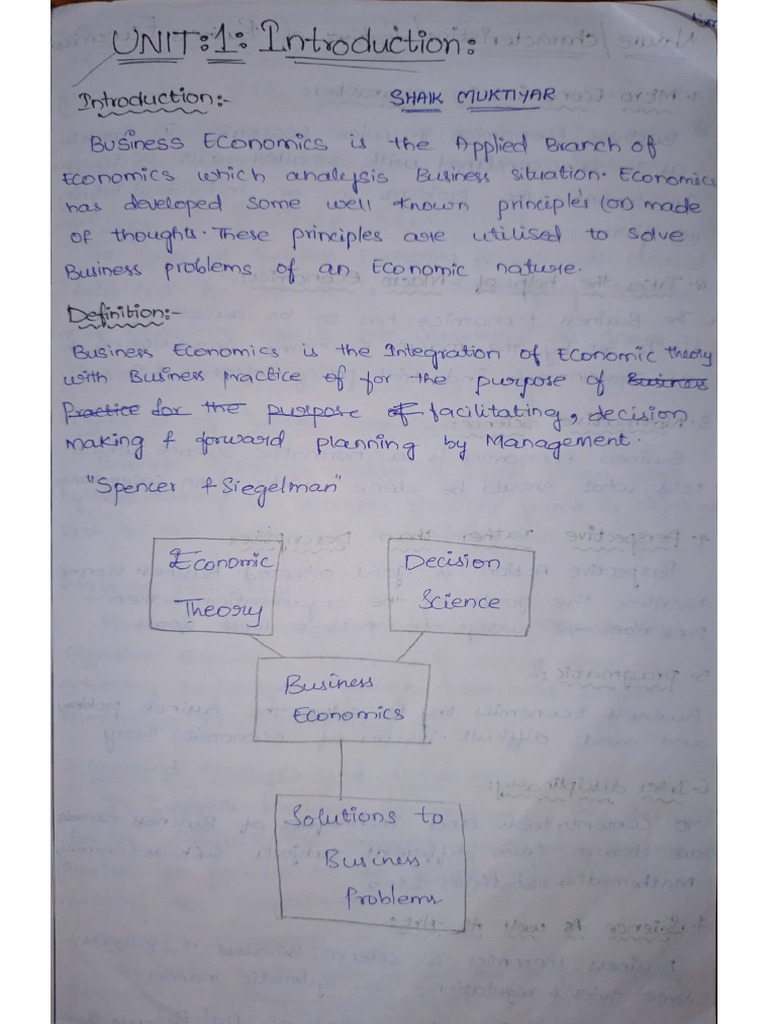 UNIT:1: Introduction:
Introduction:- SHAIK MUKTIYAR
Business Economics is the Applied Branch of
Economics which analysis Business situation. Economics
has developed some well known principle's (or) made
of thoughts. These principles are utilised to solve
Business problems of an Economic nature.
Definition:-
Business Economics is the Integration of Economic theory
with Business practice of for the purpose of Business
Practice for the purpose of facilitating, decision
making & forward planning by Management.
"Spencer & Siegelman"
Economic
Theory
Decision
Science
Business
Economics
Solutions to
Business
Problems